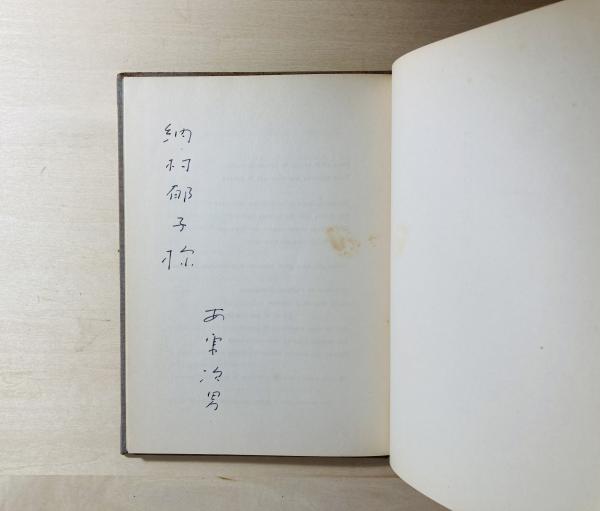 納村郁子様
安東次男